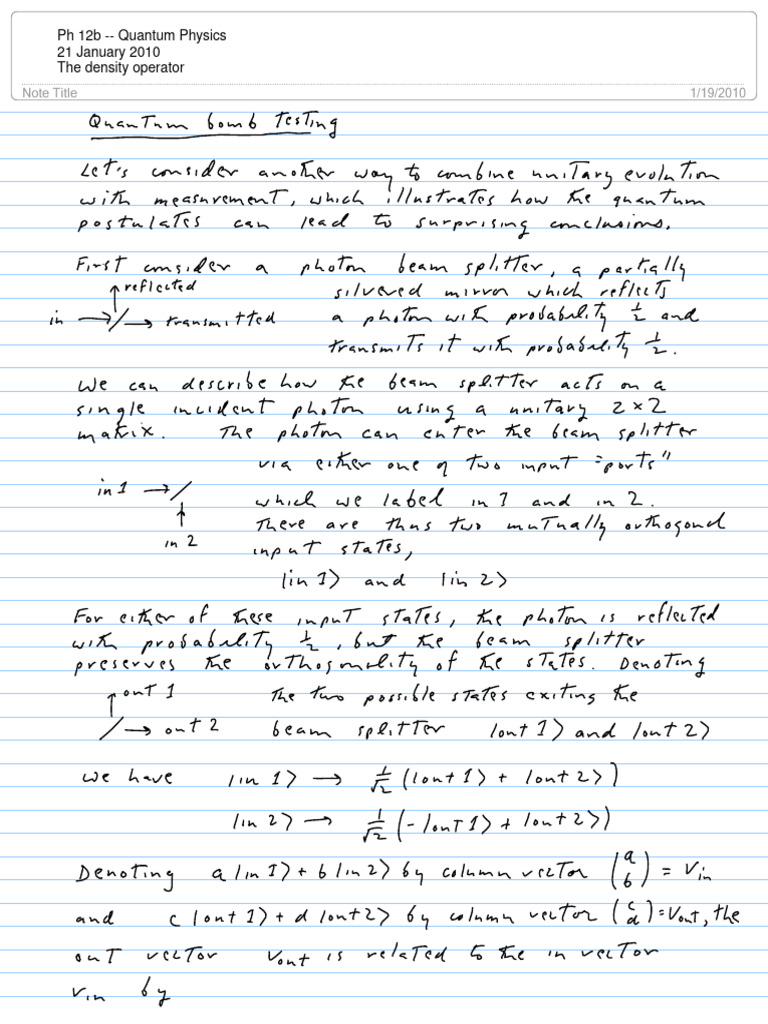 Ph 12b -- Quantum Physics
21 January 2010
The density operator
Note Title
1/19/2010
Quantum bomb testing
Let's consider another way to combine unitary evolution
with measurement, which illustrates how the quantum
postulates can lead to surprising conclusions.
First consider a photon beam splitter, a partially
reflected
silvered mirror which reflects
in → / → transmitted
a photon with probability 1/2 and
transmits it with probability 1/2.
We can describe how the beam splitter acts on a
single incident photon using a unitary 2×2
matrix. The photon can enter the beam splitter
via either one of two input "ports"
in 1 → /
which we label in 1 and in 2.
There are thus two mutually orthogonal
in 2
input states,
|in 1⟩ and |in 2⟩
For either of these input states, the photon is reflected
with probability 1/2, but the beam splitter
preserves the orthogonality of the states. Denoting
out 1
the two possible states exiting the
/ → out 2
beam splitter |out 1⟩ and |out 2⟩
we have |in 1⟩ → 1/√2 (|out 1⟩ + |out 2⟩)
|in 2⟩ → 1/√2 (-|out 1⟩ + |out 2⟩)
Denoting a|in 1⟩ + b|in 2⟩ by column vector (a b) = Vin
and c|out 1⟩ + d|out 2⟩ by column vector (c d) = Vout, the
out vector Vout is related to the in vector
Vin by